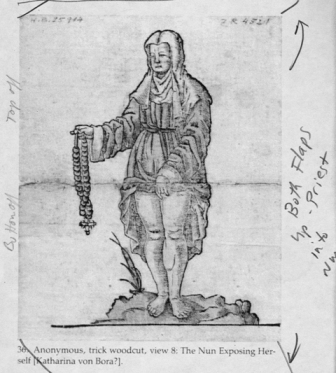 Top off
Bottom off
Both Flaps
up - Priest
into
36. Anonymous, trick woodcut, view 8: The Nun Exposing Her-
self [Katharina von Bora?].